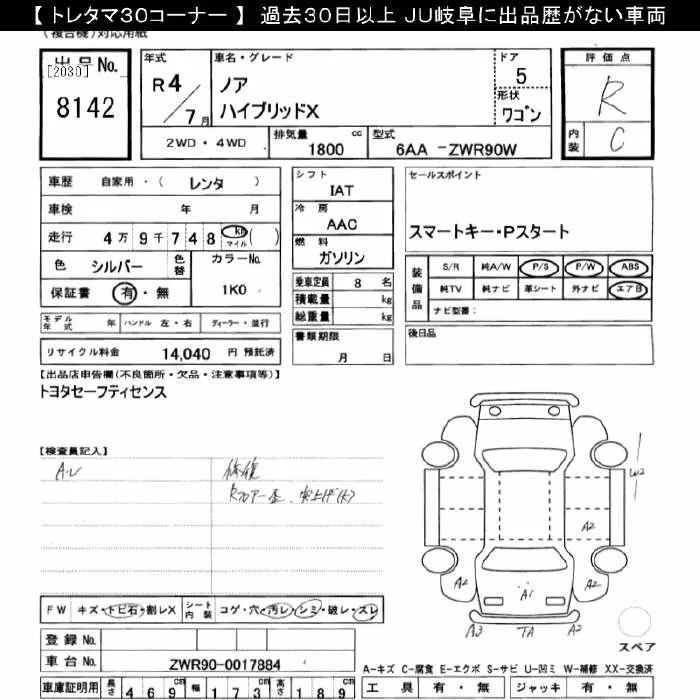 【 トレタマ30コーナー 】 過去30日以上 JU岐阜に出品歴がない車両
(複合機)対応用紙
出品No.
[2030]
8142
年式
R4/7月
車名・グレード
ノア
ハイブリッドX
ドア
5
形状
ワゴン
評価点
R
内装
C
2WD・4WD
排気量
1800 cc
型式
6AA -ZWR90W
車歴 自家用・( レンタ )
車検 年 月
走行 4万9千748 km マイル ( )
色 シルバー 色替
カラーNo.
1K0
保証書 有・無
モデル年式 年 ハンドル 左・右 ディーラー・並行
リサイクル料金 14,040 円 預託済
シフト
IAT
冷房
AAC
燃料
ガソリン
乗車定員 8 名
積載量 kg
総重量 kg
書類期限
月 日
セールスポイント
スマートキー・Pスタート
装備品
S/R 純A/W P/S P/W ABS
純TV 純ナビ 革シート 外ナビ エアB
ナビ型番:
後日品
【出品店申告欄(不良箇所・欠品・注意事項等)】
トヨタセーフティセンス
【検査員記入】
A・U
修復
Rフロアー歪、突上げ(大)
W2
A2
A2
A2
A1
A3
TA
A2
スペア
FW キズ・トビ石・割レX シート内装 コゲ・穴・汚レ・シミ・破レ・スレ
登録No.
車台No. ZWR90-0017884
車庫証明用 長さ 469cm 幅 173cm 高さ 189cm
A-キズ C-腐食 E-エクボ S-サビ U-凹ミ W-補修 XX-交換済
工具 有・無 ジャッキ 有・無